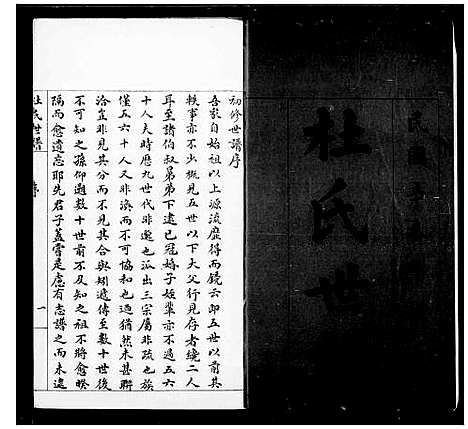 杜氏世
初修世譜序
吾家自始祖以上源流靡得而鏡云即五世以前其
軼事亦不少概見五世以下大父行見存者纔二人
耳至諸伯叔弟下逮已冠婚子姪輩亦不過五六
十人夫時歷九世代非邈也派出三宗屬非疏也族
僅五六十人又非渙而不可協和也迺猶然未甚聯
洽豈非見其分而不見其合與矧遞傳至數十世後
不可知之孫仰遡數十世前不及知之祖不將愈暌
隔而愈遺忘耶先君子蓋嘗是慮有志譜之而未逮
杜氏世譜
序
一